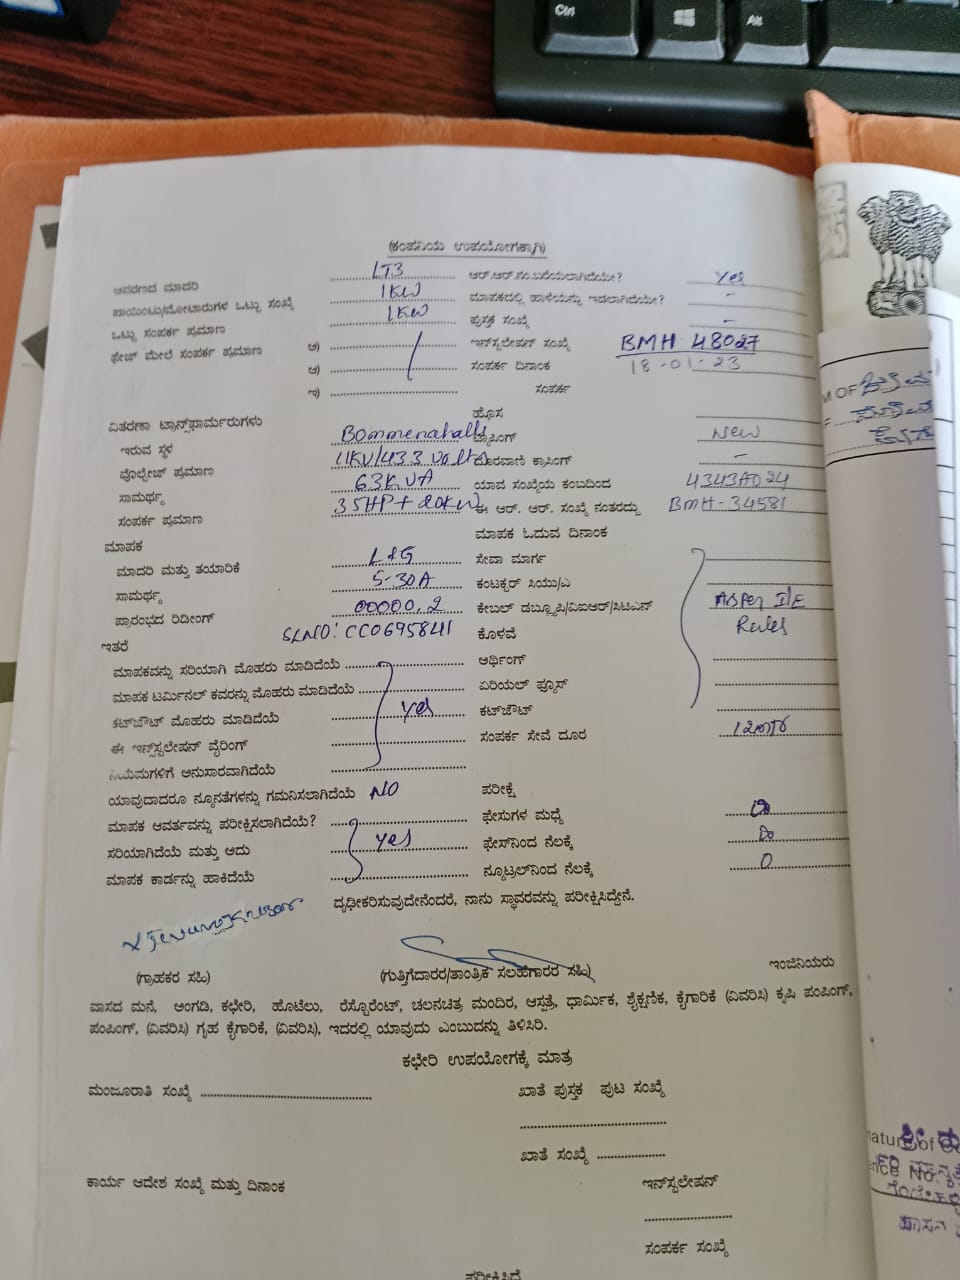 Ctrl
Alt
(ಕಂಪನಿಯ ಉಪಯೋಗಕ್ಕಾಗಿ)
ಆವರಣದ ಮಾದರಿ LT3 ಆರ್.ಆರ್.ನಂ.ಬರೆಯಲಾಗಿದೆಯೇ? Yes
ಪಾಯಿಂಟು/ಮೋಟಾರುಗಳ ಒಟ್ಟು ಸಂಖ್ಯೆ 1KW ಮಾಪಕದಲ್ಲಿ ಹಾಳೆಯನ್ನು ಇಡಲಾಗಿದೆಯೇ? -
ಒಟ್ಟು ಸಂಪರ್ಕ ಪ್ರಮಾಣ 1KW ಪುಸ್ತಕ ಸಂಖ್ಯೆ -
ಫೇಜ್ ಮೇಲೆ ಸಂಪರ್ಕ ಪ್ರಮಾಣ ಅ) ಇನ್‌ಸ್ಟಲೇಷನ್ ಸಂಖ್ಯೆ BMH 48027
ಆ) ಸಂಪರ್ಕ ದಿನಾಂಕ 18-01-23
ಇ) ಸಂಪರ್ಕ
ವಿತರಣಾ ಟ್ರಾನ್ಸ್‌ಫಾರ್ಮರುಗಳು ಹೊಸ
ಇರುವ ಸ್ಥಳ Bommenahalli ಟ್ಯಾಪಿಂಗ್ New
ವೊಲ್ಟೇಜ್ ಪ್ರಮಾಣ 11KV/433 Volts ದೂರವಾಣಿ ಕ್ರಾಸಿಂಗ್ -
ಸಾಮರ್ಥ್ಯ 63KVA ಯಾವ ಸಂಖ್ಯೆಯ ಕಂಬದಿಂದ 4343A024
ಸಂಪರ್ಕ ಪ್ರಮಾಣ 35HP + 20KW ಈ ಆರ್. ಆರ್. ಸಂಖ್ಯೆ ನಂತರದ್ದು BMH-34581
ಮಾಪಕ ಮಾಪಕ ಓದುವ ದಿನಾಂಕ
ಮಾದರಿ ಮತ್ತು ತಯಾರಿಕೆ L&G ಸೇವಾ ಮಾರ್ಗ
ಸಾಮರ್ಥ್ಯ 5-30A ಕಂಟಕ್ಟರ್ ಸಿಯು/ಎ
ಪ್ರಾರಂಭದ ರಿಡಿಂಗ್ 00000.2 ಕೇಬಲ್ ಡಬ್ಲ್ಯೂಪಿ/ವಿಐಆರ್/ಸಿಟಿಎಸ್ As per I/E
ಇತರೆ SLNO: CC0695841 ಕೊಳವೆ Rules
ಮಾಪಕವನ್ನು ಸರಿಯಾಗಿ ಮೊಹರು ಮಾಡಿದೆಯೆ ಆರ್ಥಿಂಗ್
ಮಾಪಕ ಟರ್ಮಿನಲ್ ಕವರನ್ನು ಮೊಹರು ಮಾಡಿದೆಯೆ ಏರಿಯಲ್ ಫ್ಯೂಸ್
ಕಟ್‌ಔಟ್ ಮೊಹರು ಮಾಡಿದೆಯೆ Yes ಕಟ್‌ಔಟ್
ಈ ಇನ್‌ಸ್ಟಲೇಷನ್ ವೈರಿಂಗ್ ಸಂಪರ್ಕ ಸೇವೆ ದೂರ
ನಿಯಮಗಳಿಗೆ ಅನುಸಾರವಾಗಿದೆಯೆ
ಯಾವುದಾದರೂ ನ್ಯೂನತೆಗಳನ್ನು ಗಮನಿಸಲಾಗಿದೆಯೆ NO ಪರೀಕ್ಷೆ
ಮಾಪಕ ಆವರ್ತವನ್ನು ಪರೀಕ್ಷಿಸಲಾಗಿದೆಯೆ? ಫೇಸುಗಳ ಮಧ್ಯೆ
ಸರಿಯಾಗಿದೆಯೆ ಮತ್ತು ಆದು Yes ಫೇಸ್‌ನಿಂದ ನೆಲಕ್ಕೆ
ಮಾಪಕ ಕಾರ್ಡನ್ನು ಹಾಕಿದೆಯೆ ನ್ಯೂಟ್ರಲ್‌ನಿಂದ ನೆಲಕ್ಕೆ 0
ದೃಢೀಕರಿಸುವುದೇನೆಂದರೆ, ನಾನು ಸ್ಥಾವರವನ್ನು ಪರೀಕ್ಷಿಸಿದ್ದೇನೆ.
(ಗ್ರಾಹಕರ ಸಹಿ) (ಗುತ್ತಿಗೆದಾರರ/ತಾಂತ್ರಿಕ ಸಲಹೆಗಾರರ ಸಹಿ) ಇಂಜಿನಿಯರು
ವಾಸದ ಮನೆ, ಅಂಗಡಿ, ಕಛೇರಿ, ಹೊಟೆಲು, ರೆಸ್ಟೊರೆಂಟ್, ಚಲನಚಿತ್ರ ಮಂದಿರ, ಆಸ್ಪತ್ರೆ, ಧಾರ್ಮಿಕ, ಶೈಕ್ಷಣಿಕ, ಕೈಗಾರಿಕೆ (ವಿವರಿಸಿ) ಕೃಷಿ ಪಂಪಿಂಗ್,
ಪಂಪಿಂಗ್, (ವಿವರಿಸಿ) ಗೃಹ ಕೈಗಾರಿಕೆ, (ವಿವರಿಸಿ), ಇದರಲ್ಲಿ ಯಾವುದು ಎಂಬುದನ್ನು ತಿಳಿಸಿರಿ.
ಕಛೇರಿ ಉಪಯೋಗಕ್ಕೆ ಮಾತ್ರ
ಮಂಜೂರಾತಿ ಸಂಖ್ಯೆ ಖಾತೆ ಪುಸ್ತಕ ಪುಟ ಸಂಖ್ಯೆ
ಖಾತೆ ಸಂಖ್ಯೆ
ಕಾರ್ಯ ಆದೇಶ ಸಂಖ್ಯೆ ಮತ್ತು ದಿನಾಂಕ ಇನ್‌ಸ್ಟಲೇಷನ್
ಸಂಪರ್ಕ ಸಂಖ್ಯೆ